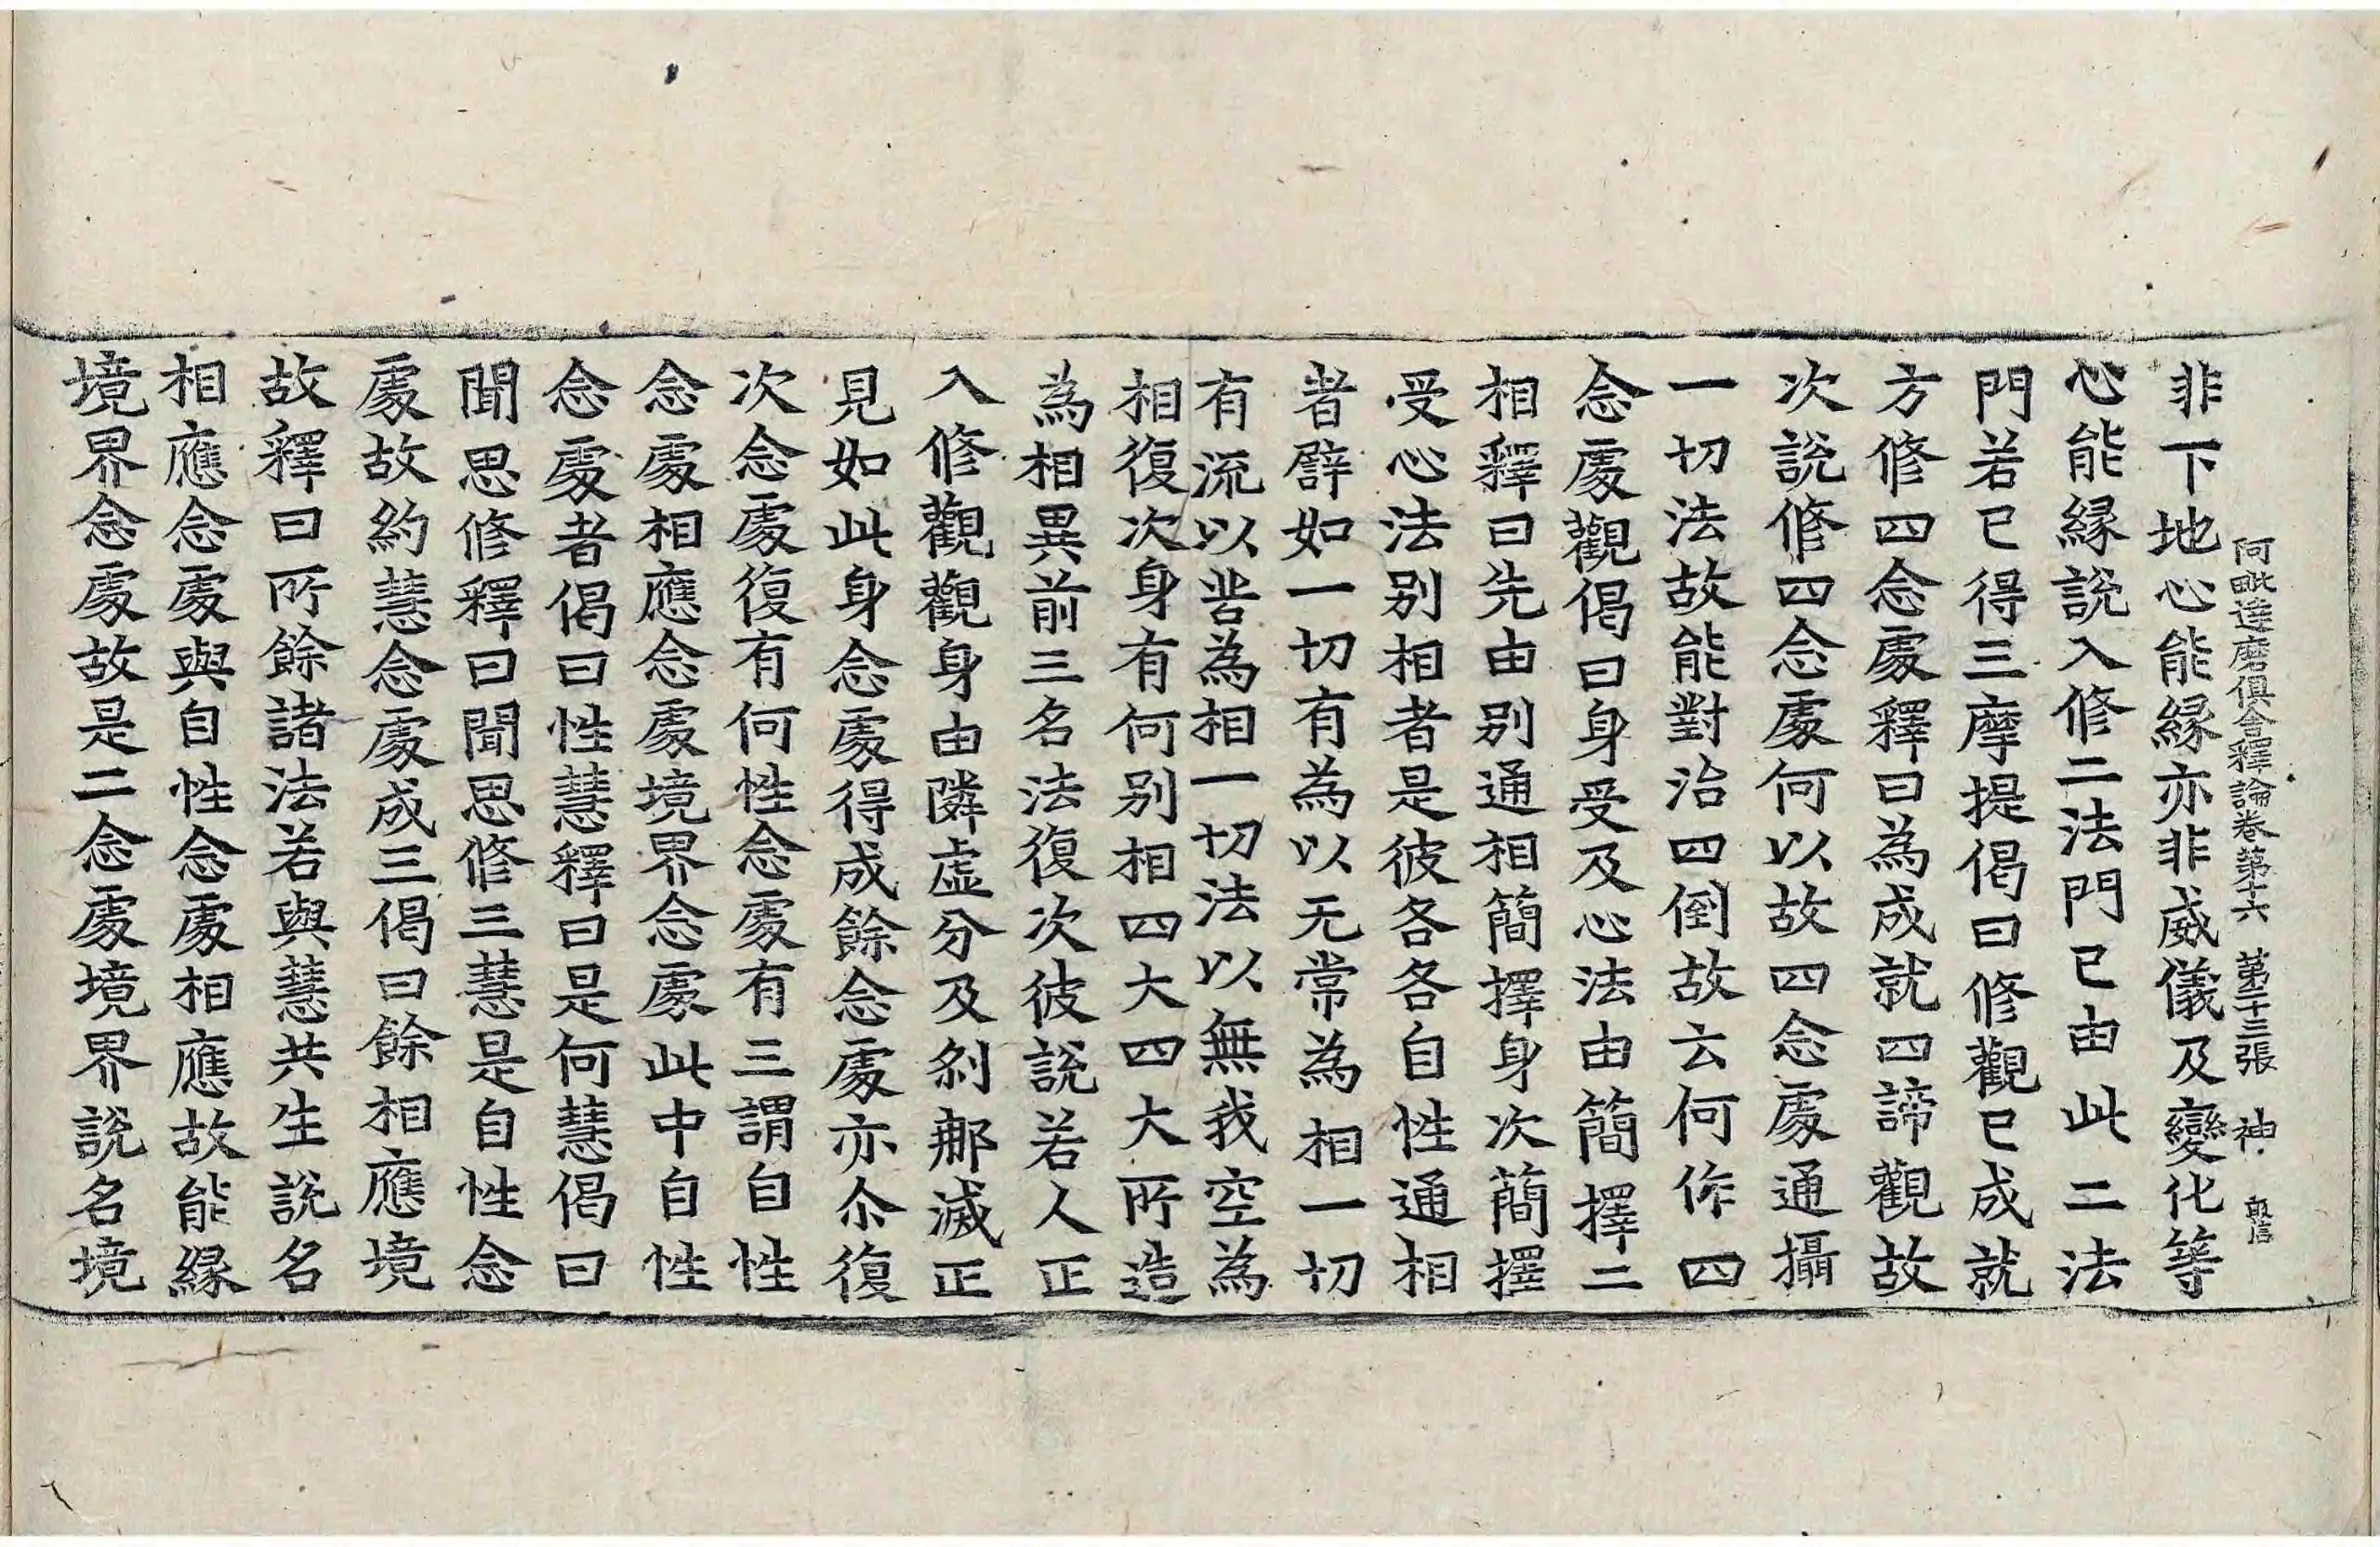 阿毗達磨俱舍釋論卷第十六　第二十三張　神
非下地心能緣亦非威儀及變化等
心能緣說入修二法門已由此二法
門若已得三摩提偈曰修觀已成就
方修四念處釋曰為成就四諦觀故
次說修四念處何以故四念處通攝
一切法故能對治四倒故云何作四
念處觀偈曰身受及心法由簡擇二
相釋曰先由別通相簡擇身次簡擇
受心法別相者是彼各各自性通相
者譬如一切有為以无常為相一切
有流以苦為相一切法以無我空為
相復次身有何別相四大四大所造
為相異前三名法復次彼說若人正
入修觀觀身由隣虛分及剎那滅正
見如此身念處得成餘念處亦尒復
次念處復有何性念處有三謂自性
念處相應念處境界念處此中自性
念處者偈曰性慧釋曰是何慧偈曰
聞思修釋曰聞思修三慧是自性念
處故約慧念處成三偈曰餘相應境
故釋曰所餘諸法若與慧共生說名
相應念處與自性念處相應故能緣
境界念處故是二念處境界說名境